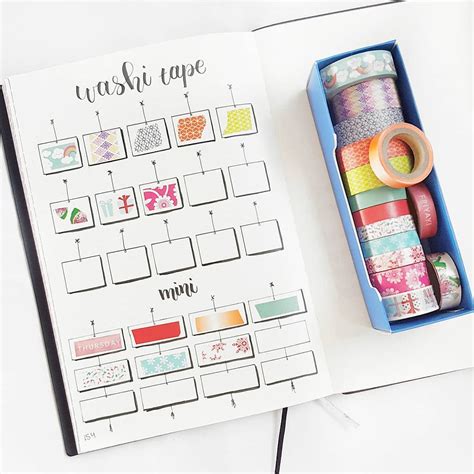 washi tape
mini
THURSDAY
FRIYAY!
154